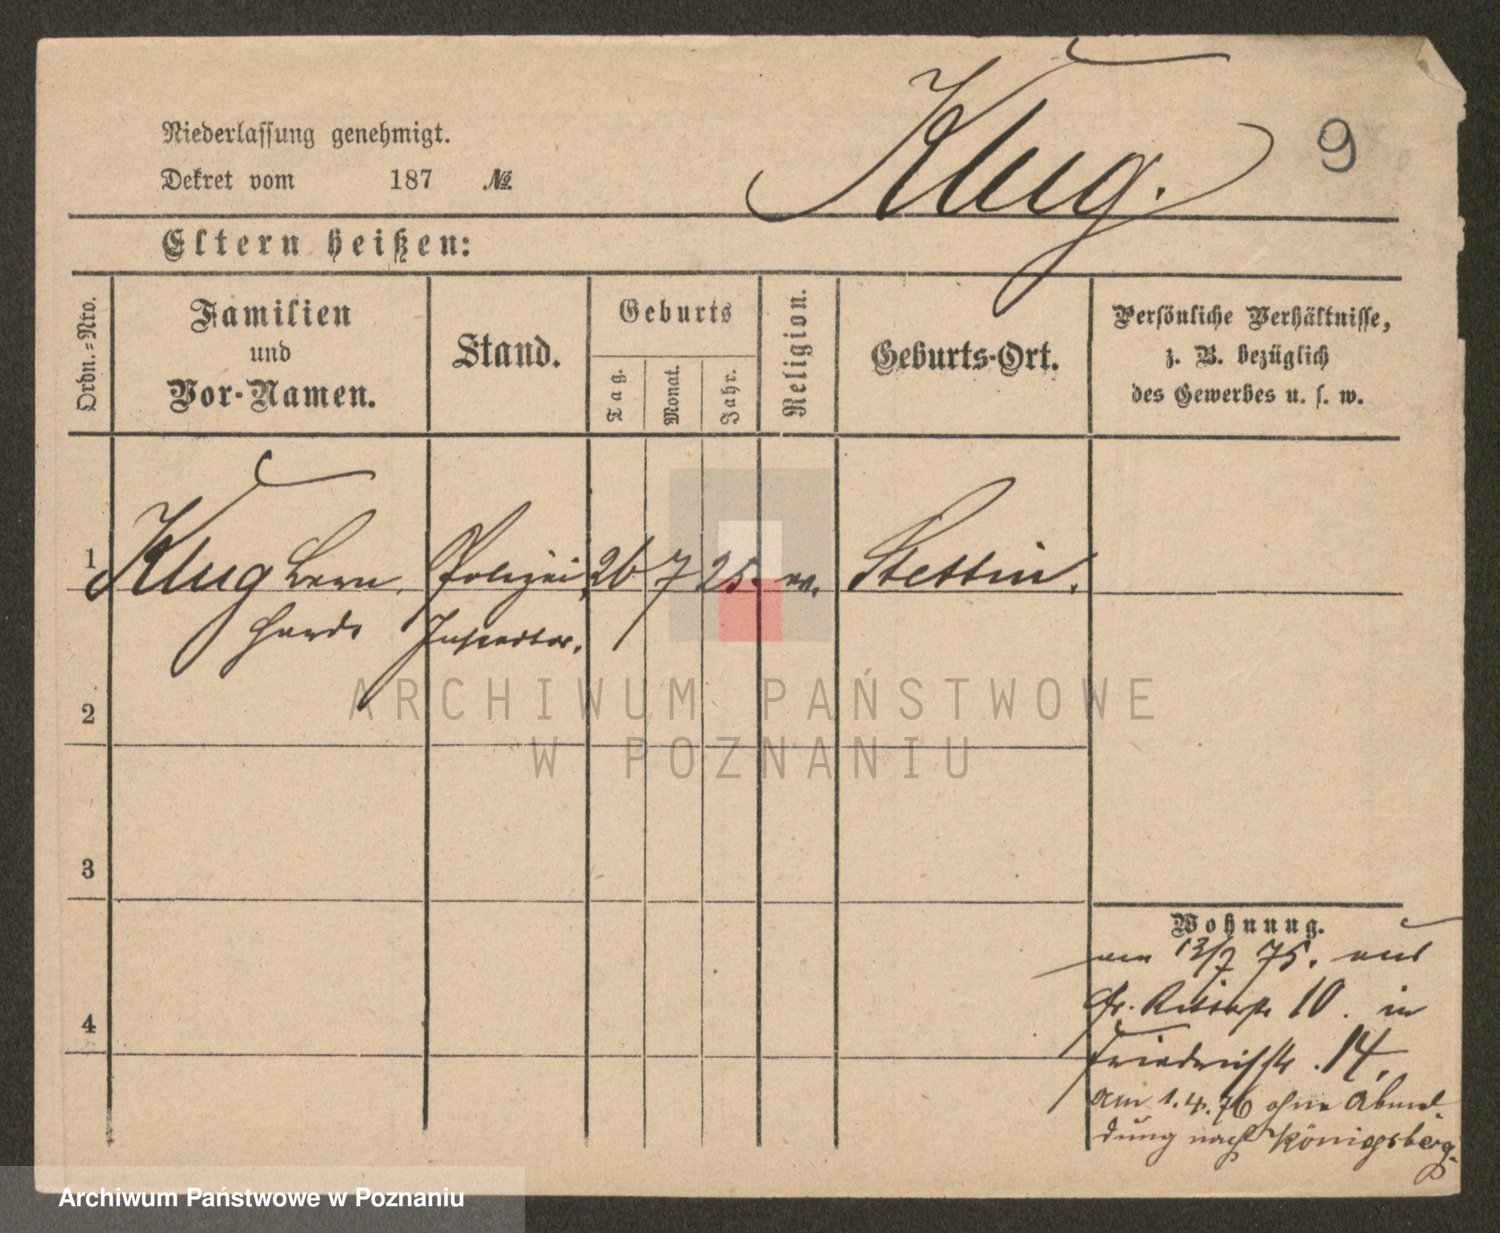 Klug.
9
Niederlassung genehmigt.
Dekret vom 187 №
Eltern heißen:
Ordn.-Nro.
Familien
und
Vor-Namen.
Stand.
Geburts
Tag.
Monat.
Jahr.
Religion.
Geburts-Ort.
Persönliche Verhältnisse,
z. B. bezüglich
des Gewerbes u. s. w.
1 Klug Bern Polizei 26 7 25. ev. Stettin.
hard Inspector.
2
ARCHIWUM PAŃSTWOWE
W POZNANIU
3
Wohnung.
am 13/7 75. aus
gr. Ritterstr 10. in
Friedrichstr. 14.
4
am 1.4.76 ohne Abmel-
dung nach Königsberg.
Archiwum Państwowe w Poznaniu